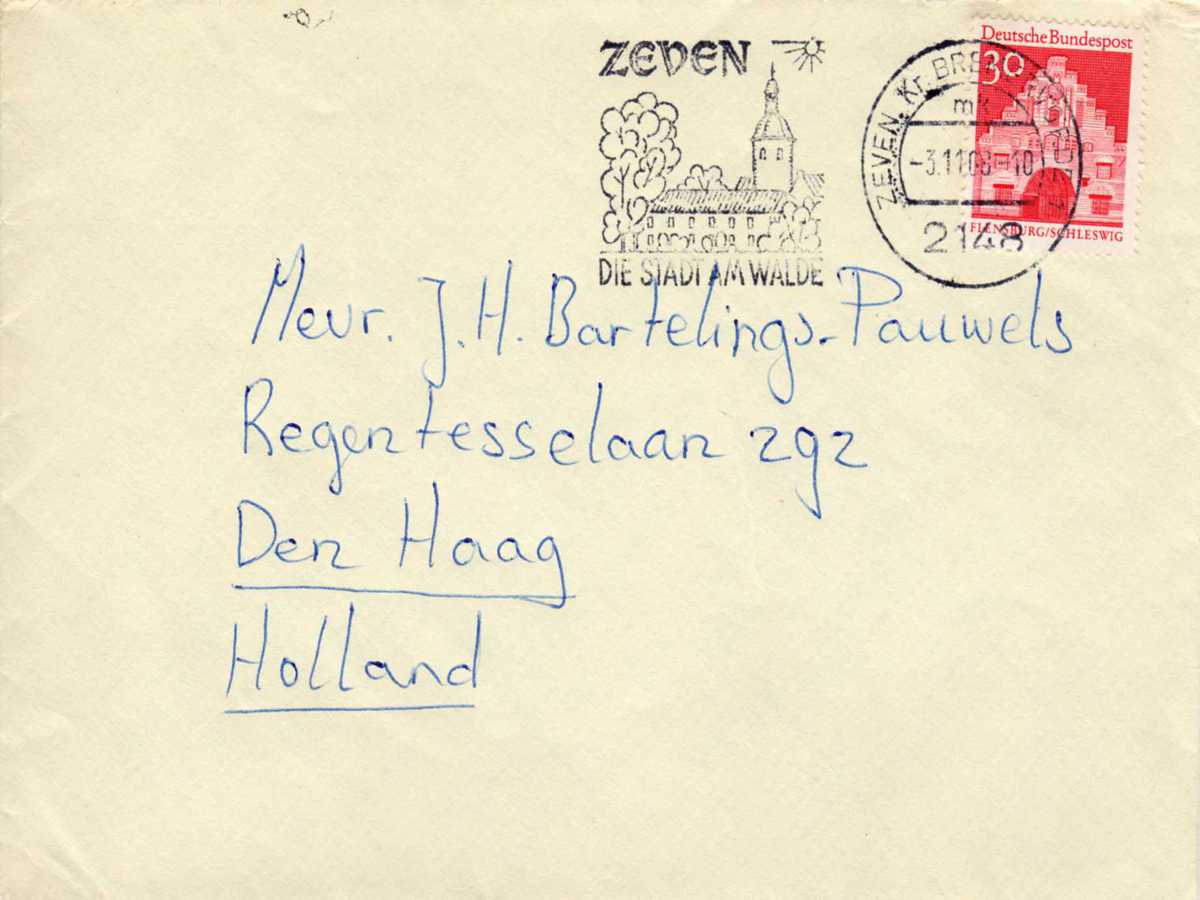 ZEVEN
DIE STADT AM WALDE
ZEVEN, Kr. BREMERVÖRDE 1
mk
-3.11.68-10
2148
Deutsche Bundespost
30
FLENSBURG/SCHLESWIG
Mevr. J.H. Bartelings-Pauwels
Regentesselaan 292
Den Haag
Holland